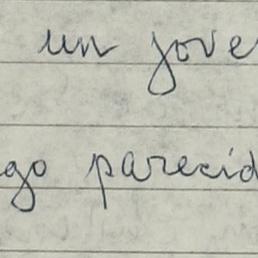 un jove
go parecid